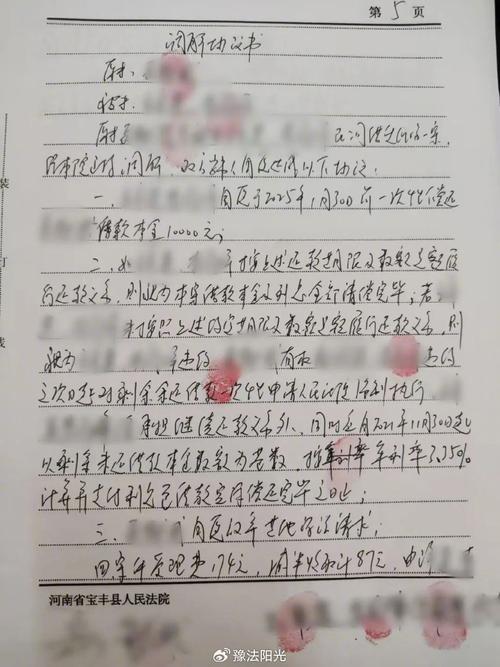 第 5 页
调解协议书
原告:
被告:
原告 民间借贷纠纷一案,
经本院主持调解,双方当事人自愿达成以下协议:
一、 自愿于2025年1月30日前一次性偿还
借款本金10000元;
二、如 按上述还款期限及数额足额履
行还款义务,则视为本案借款本金及利息全部清偿完毕;若
未按照上述约定期限及数额足额履行还款义务,则
视为 违约 有权 违约
之次日起对剩余未还借款一次性申请人民法院强制执行,
承担继续还款义务外,同时还自2021年11月30日起
以剩余未还借款本金数额为基数,按 年利率3.85%
计算并支付利息至借款实际偿还完毕之日止;
三、 自愿放弃其他诉讼请求;
四、案件受理费174元,减半收取计87元,由
河南省宝丰县人民法院
装
订
线
豫法阳光